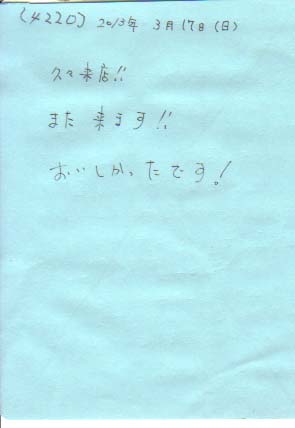 (4220) 2013年 3月17日(日)
久々来店!!
また来ます!!
おいしかったです!